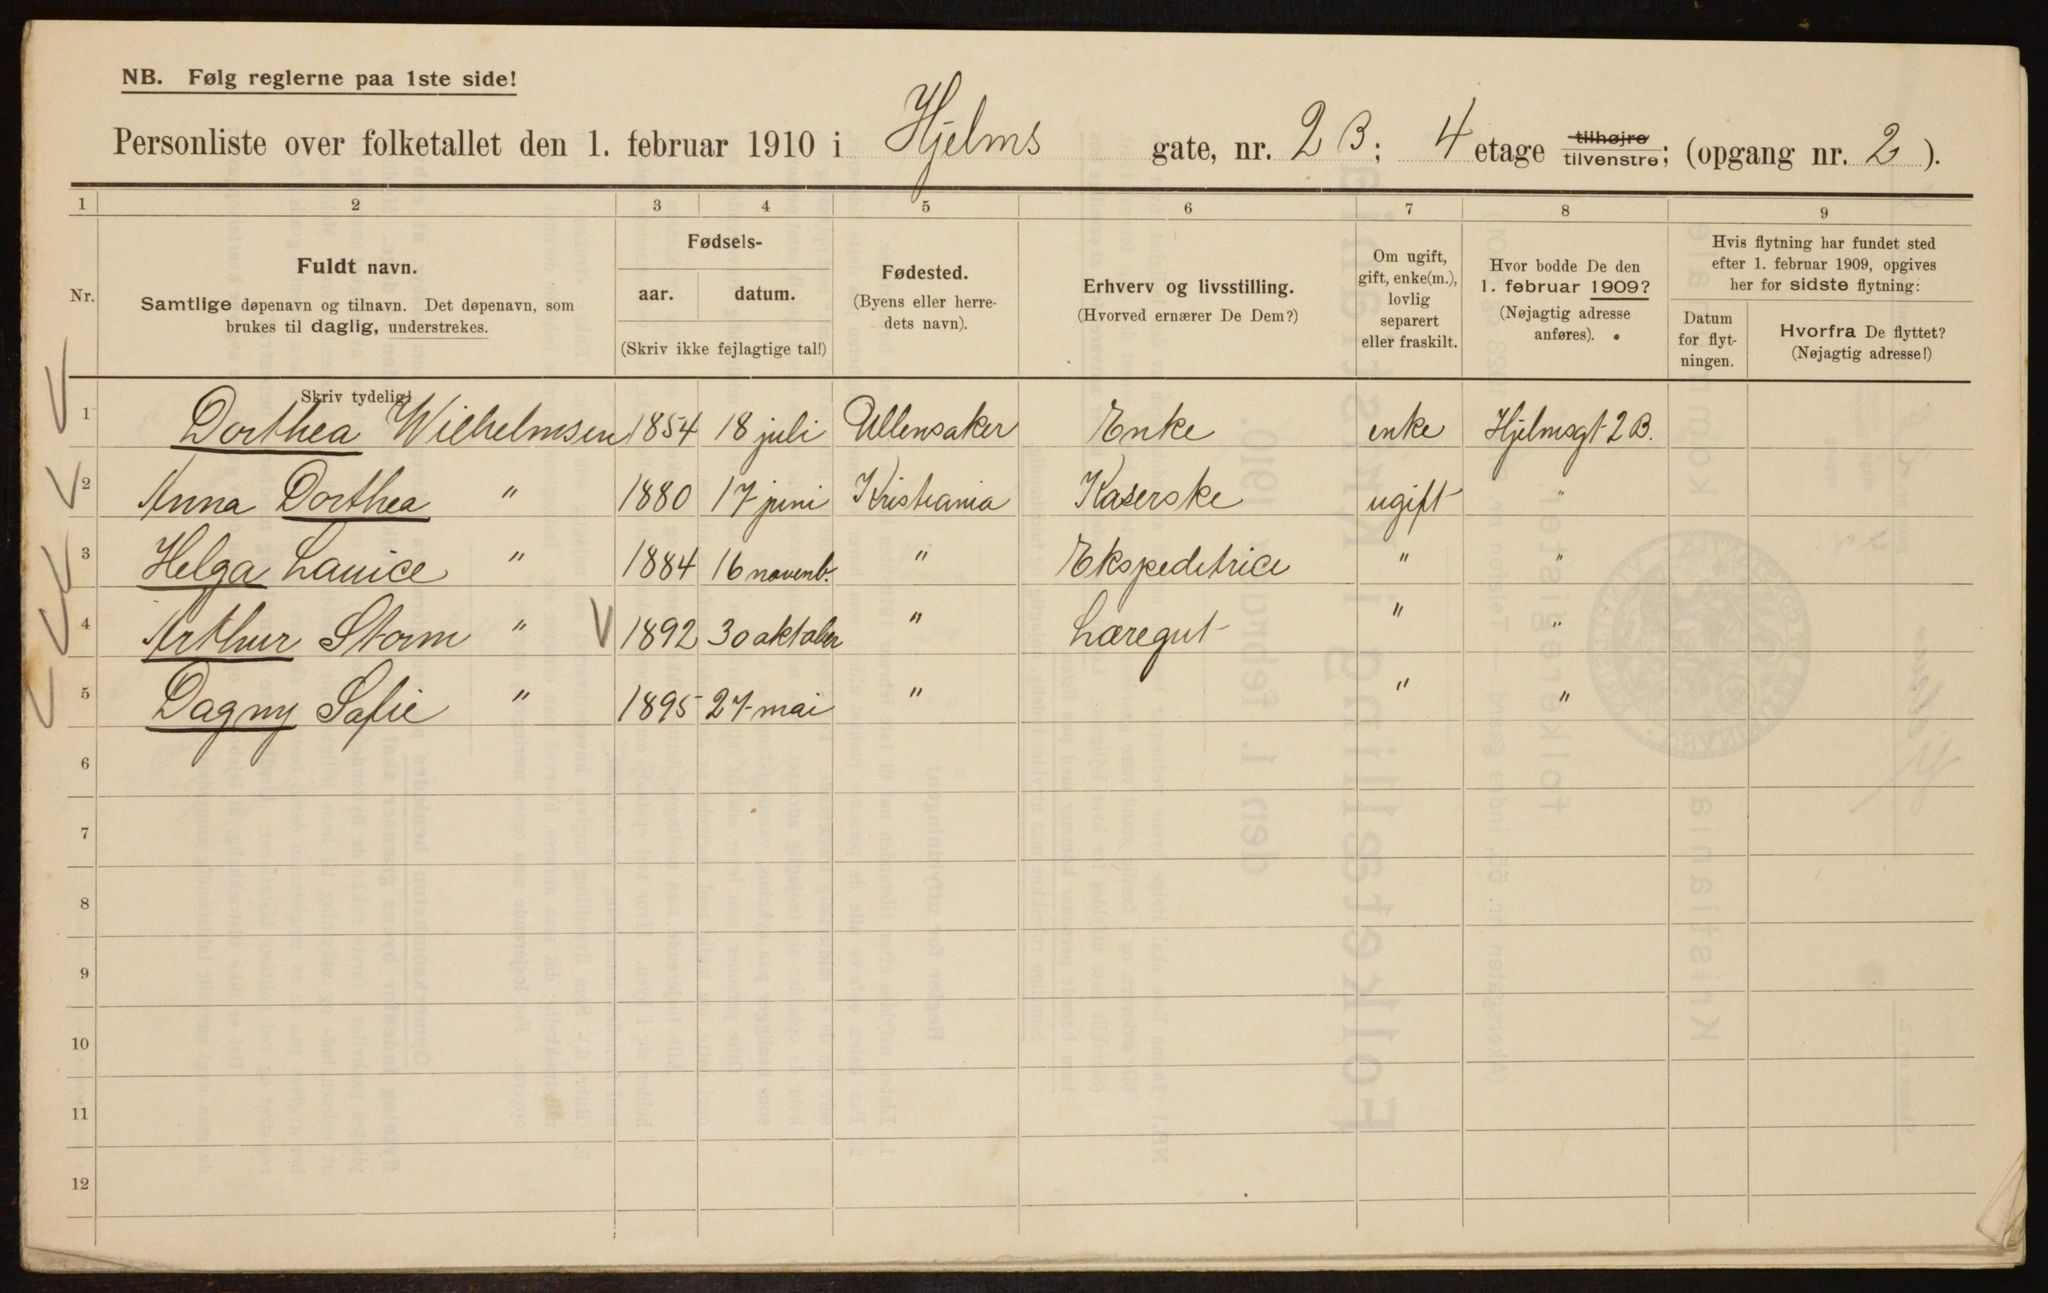 NB. Følg reglerne paa 1ste side!
Personliste over folketallet den 1. februar 1910 i Hjelms gate, nr. 2 B; 4 etage tilhøjre tilvenstre; (opgang nr. 2 ).
1 2 3 4 5 6 7 8 9
Nr.
Fuldt navn.
Samtlige døpenavn og tilnavn. Det døpenavn, som
brukes til daglig, understrekes.
Skriv tydelig!
Fødsels-
aar. datum.
(Skriv ikke fejlagtige tal!)
Fødested.
(Byens eller herre-
dets navn).
Erhverv og livsstilling.
(Hvorved ernærer De Dem?)
Om ugift,
gift, enke(m.),
lovlig
separert
eller fraskilt.
Hvor bodde De den
1. februar 1909?
(Nøjagtig adresse
anføres).
Hvis flytning har fundet sted
efter 1. februar 1909, opgives
her for sidste flytning:
Datum
for flyt-
ningen.
Hvorfra De flyttet?
(Nøjagtig adresse!)
1 Dorthea Wilhelmsen 1854 18 juli Ullensaker Enke enke Hjelmsgt 2 B.
2 Anna Dorthea " 1880 17 juni Kristiania Kaserske ugift "
3 Helga Lauice " 1884 16 novenb. " Ekspeditrice " "
4 Arthur Storm " 1892 30 oktober " Læregut " "
5 Dagny Sofie " 1895 27 mai " " "
6
7
8
9
10
11
12